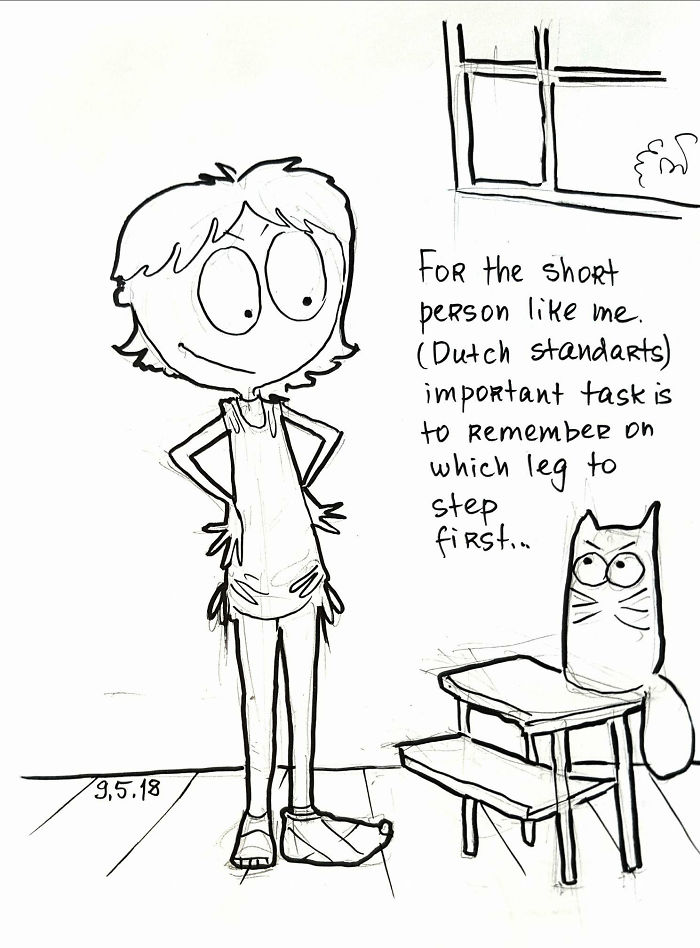 FOR the short
person like me.
(Dutch standarts)
important task is
to Remember on
which leg to
step
first...
9.5.18